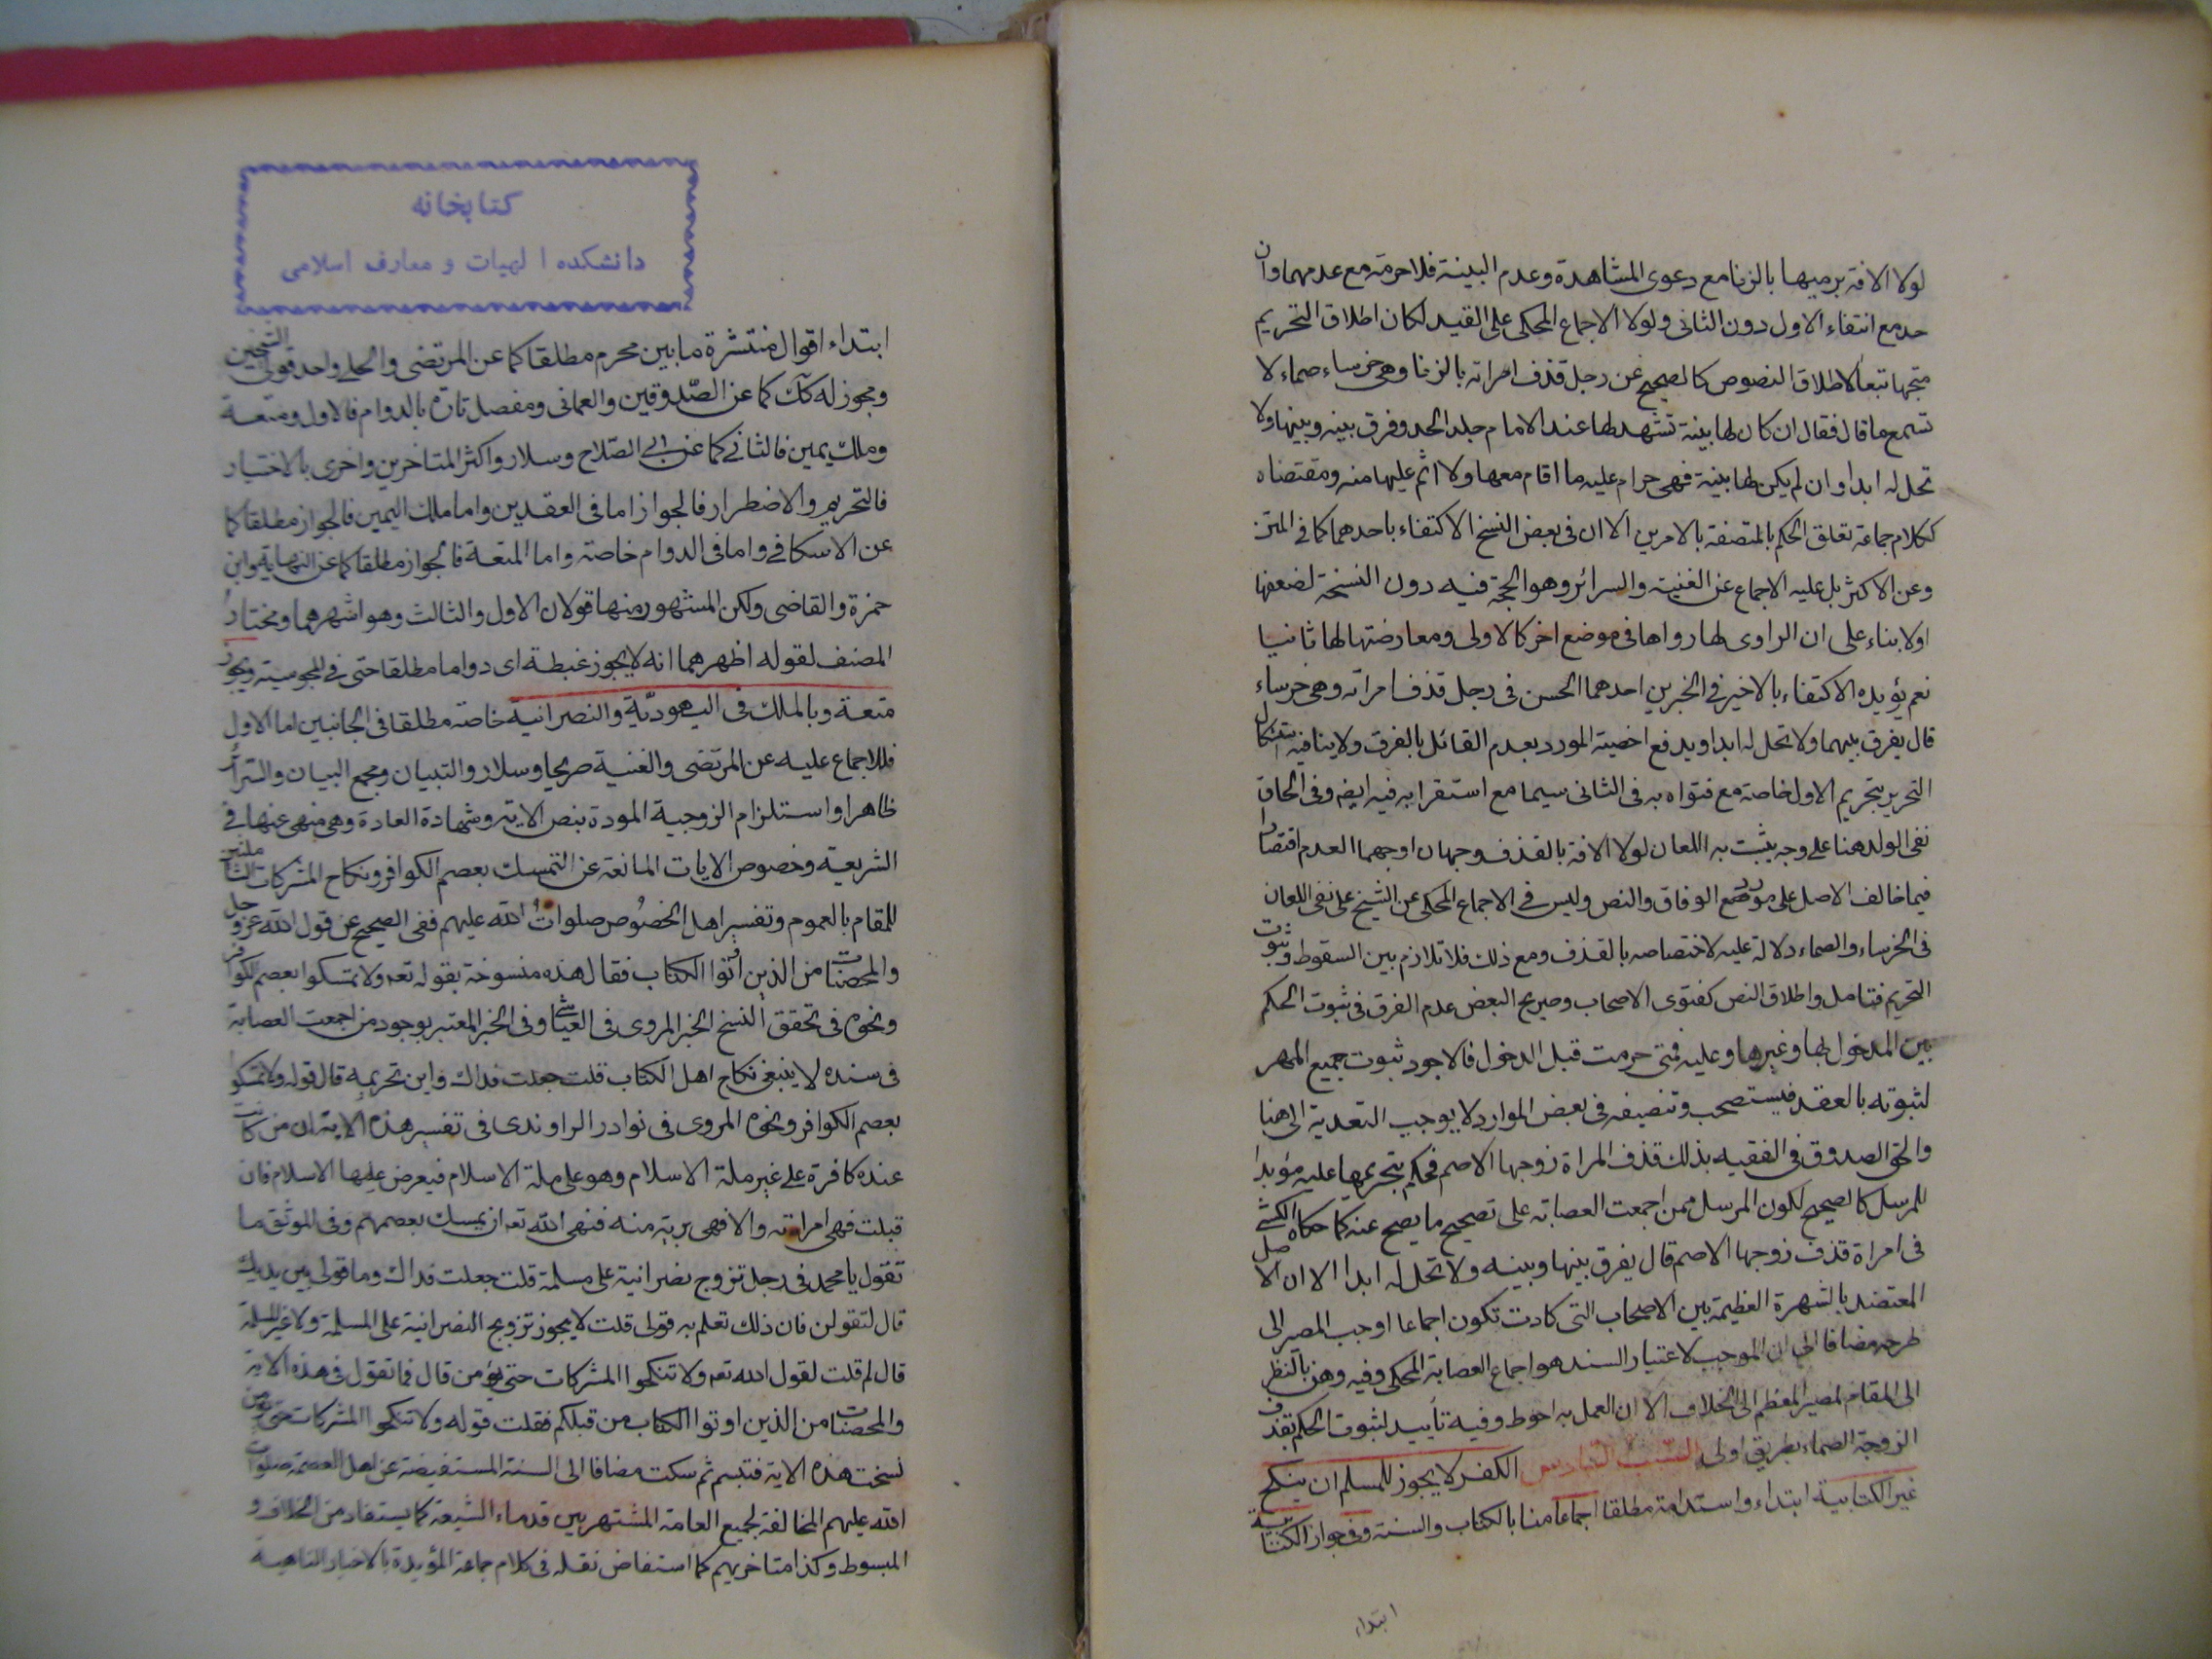 لولا الافة برميها بالزنا مع دعوى المشاهدة وعدم البينة فلا حرمة مع عدمهما وان
حد مع انتفاء الاول دون الثانى ولولا الاجماع المحكى على القيد لكان اطلاق التحريم
متجها تبعا لاطلاق النصوص كالصحيح عن رجل قذف امراته بالزنا وهى خرساء صماء لا
تسمع ما قال فقال ان كان لها بينة تشهد لها عند الامام جلد الحد وفرق بينه وبينها ولا
تحل له ابدا وان لم يكن لها بينة فهى حرام عليه ما اقام معها ولا اثم عليها منه ومقتضاه
ككلام جماعة تعلق الحكم بالمتصفة بالامرين الا ان فى بعض النسخ الاكتفاء باحدهما كما فى المتن
وعن الاكثر بل عليه الاجماع عن الغنية والسرائر وهو الحجة فيه دون النسخة لضعفها
اولا بناء على ان الراوى لها رواها فى موضع اخر كالاولى ومعارضتها لها ثانيا
نعم يؤيده الاكتفاء بالاخير فى الخبرين احدهما الحسن فى رجل قذف امراته وهى خرساء
قال يفرق بينهما ولا تحل له ابدا ويدفع اخصية المورد بعدم القائل بالفرق ولا ينافيه استشكال
التحرير بتحريم الاول خاصة مع فتواه به فى الثانى سيما مع استقرابه فيه ايضا وفى الحاق
نفى الولد هنا على وجه يثبت به اللعان لولا الافة بالقذف وجهان اوجهما العدم اقتصارا
فيما خالف الاصل على مورد الوفاق والنص وليس فى الاجماع المحكى عن الشيخ على نفى اللعان
فى الخرساء والصماء دلالة عليه لاختصاصه بالقذف ومع ذلك فلا تلازم بين السقوط وثبوت
التحريم فتامل واطلاق النص كفتوى الاصحاب وصريح البعض عدم الفرق فى ثبوت الحكم
بين المدخول بها وغيرها وعليه فمتى حرمت قبل الدخول فالاجود ثبوت جميع المهر
لثبوته بالعقد فيستصحب وتنصيفه فى بعض الموارد لا يوجب التعدية الى هنا
والحق الصدوق فى الفقيه بذلك قذف المراة زوجها الاصم فحكم بتحريمها عليه مؤبدا
للمرسل كالصحيح لكون المرسل ممن اجمعت العصابة على تصحيح ما يصح عنه كما حكاه الكشى
فى امراة قذف زوجها الاصم قال يفرق بينها وبينه ولا تحل له ابدا الا ان الاصل
المعتضد بالشهرة العظيمة بين الاصحاب التى كادت تكون اجماعا اوجب المصير الى
طرحه مضافا الى ان الموجب لاعتبار السند هو اجماع العصابة المحكى وفيه وهن بالنظر
الى المقام لمصير المعظم الى الخلاف الا ان العمل به احوط وفيه تأييد لثبوت الحكم بقذف
الزوجة الصماء بطريق اولى السبب السادس الكفر لا يجوز للمسلم ان ينكح
غير الكتابية ابتداء واستدامة مطلقا اجماعا منا بالكتاب والسنة وفى جواز الكتابية
ابتداء
كتابخانه
دانشكده الهيات و معارف اسلامى
ابتداء اقوال منتشرة ما بين محرم مطلقا كما عن المرتضى والحلى واحد قولى الشيخين
ومجوز له كك كما عن الصدوقين والعمانى ومفصل تارة بالدوام فالاول ومتعة
وملك يمين فالثانى كما عن ابى الصلاح وسلار واكثر المتاخرين واخرى بالاختيار
فالتحريم والاضطرار فالجواز اما فى العقدين واما ملك اليمين فالجواز مطلقا كما
عن الاسكافى واما فى الدوام خاصة واما المتعة فالجواز مطلقا كما عن النهاية وابن
حمزة والقاضى ولكن المشهور منها قولان الاول والثالث وهو اشهرهما ومختار
المصنف لقوله اظهرهما انه لا يجوز غبطة اى دواما مطلقا حتى فى المجوسية ويجوز
متعة وبالملك فى اليهودية والنصرانية خاصة مطلقا فى الجانبين اما الاول
فللاجماع عليه عن المرتضى والغنية صريحا وسلار والتبيان ومجمع البيان والسرائر
ظاهرا واستلزام الزوجية المودة بنص الاية وشهادة العادة وهى منهى عنها فى
الشريعة وخصوص الايات المانعة عن التمسك بعصم الكوافر ونكاح المشركات الشاملتين
للمقام بالعموم وتفسير اهل الخصوص صلوات الله عليهم ففى الصحيح عن قول الله عز وجل
والمحصنات من الذين اتوا الكتاب فقال هذه منسوخة بقوله تعه ولا تمسكوا بعصم الكوافر
ونحوه فى تحقق النسخ الخبر المروى فى العياشى وفى الخبر المعتبر بوجود من اجمعت العصابة
فى سنده لا ينبغى نكاح اهل الكتاب قلت جعلت فداك واين تحريمه قال قوله ولا تمسكوا
بعصم الكوافر ونحوه المروى فى نوادر الراوندى فى تفسير هذه الاية ان من كانت
عنده كافرة على غير ملة الاسلام وهو على ملة الاسلام فيعرض عليها الاسلام فان
قبلت فهى امراته والا فهى برية منه فنهى الله تعه ان يمسك بعصمهم وفى الموثق ما
تقول يا محمد فى رجل تزوج نصرانية على مسلمة قلت جعلت فداك وما قولى بين يديك
قال لتقولن فان ذلك تعلم به قولى قلت لا يجوز تزويج النصرانية على المسلمة ولا غير المسلمة
قال لم قلت لقول الله تعه ولا تنكحوا المشركات حتى يؤمن قال فما تقول فى هذه الاية
والمحصنات من الذين اوتوا الكتاب من قبلكم فقلت قوله ولا تنكحوا المشركات حتى يؤمن
نسخت هذه الاية فتبسم ثم سكت مضافا الى السنة المستفيضة عن اهل العصمة صلوات
الله عليهم المخالفة لجميع العامة المشتهر بين قدماء الشيعة كما يستفاد من الخلاف و
المبسوط وكذا متاخريهم كما استفاض نقله فى كلام جماعة المؤيدة بالاخبار الناهية